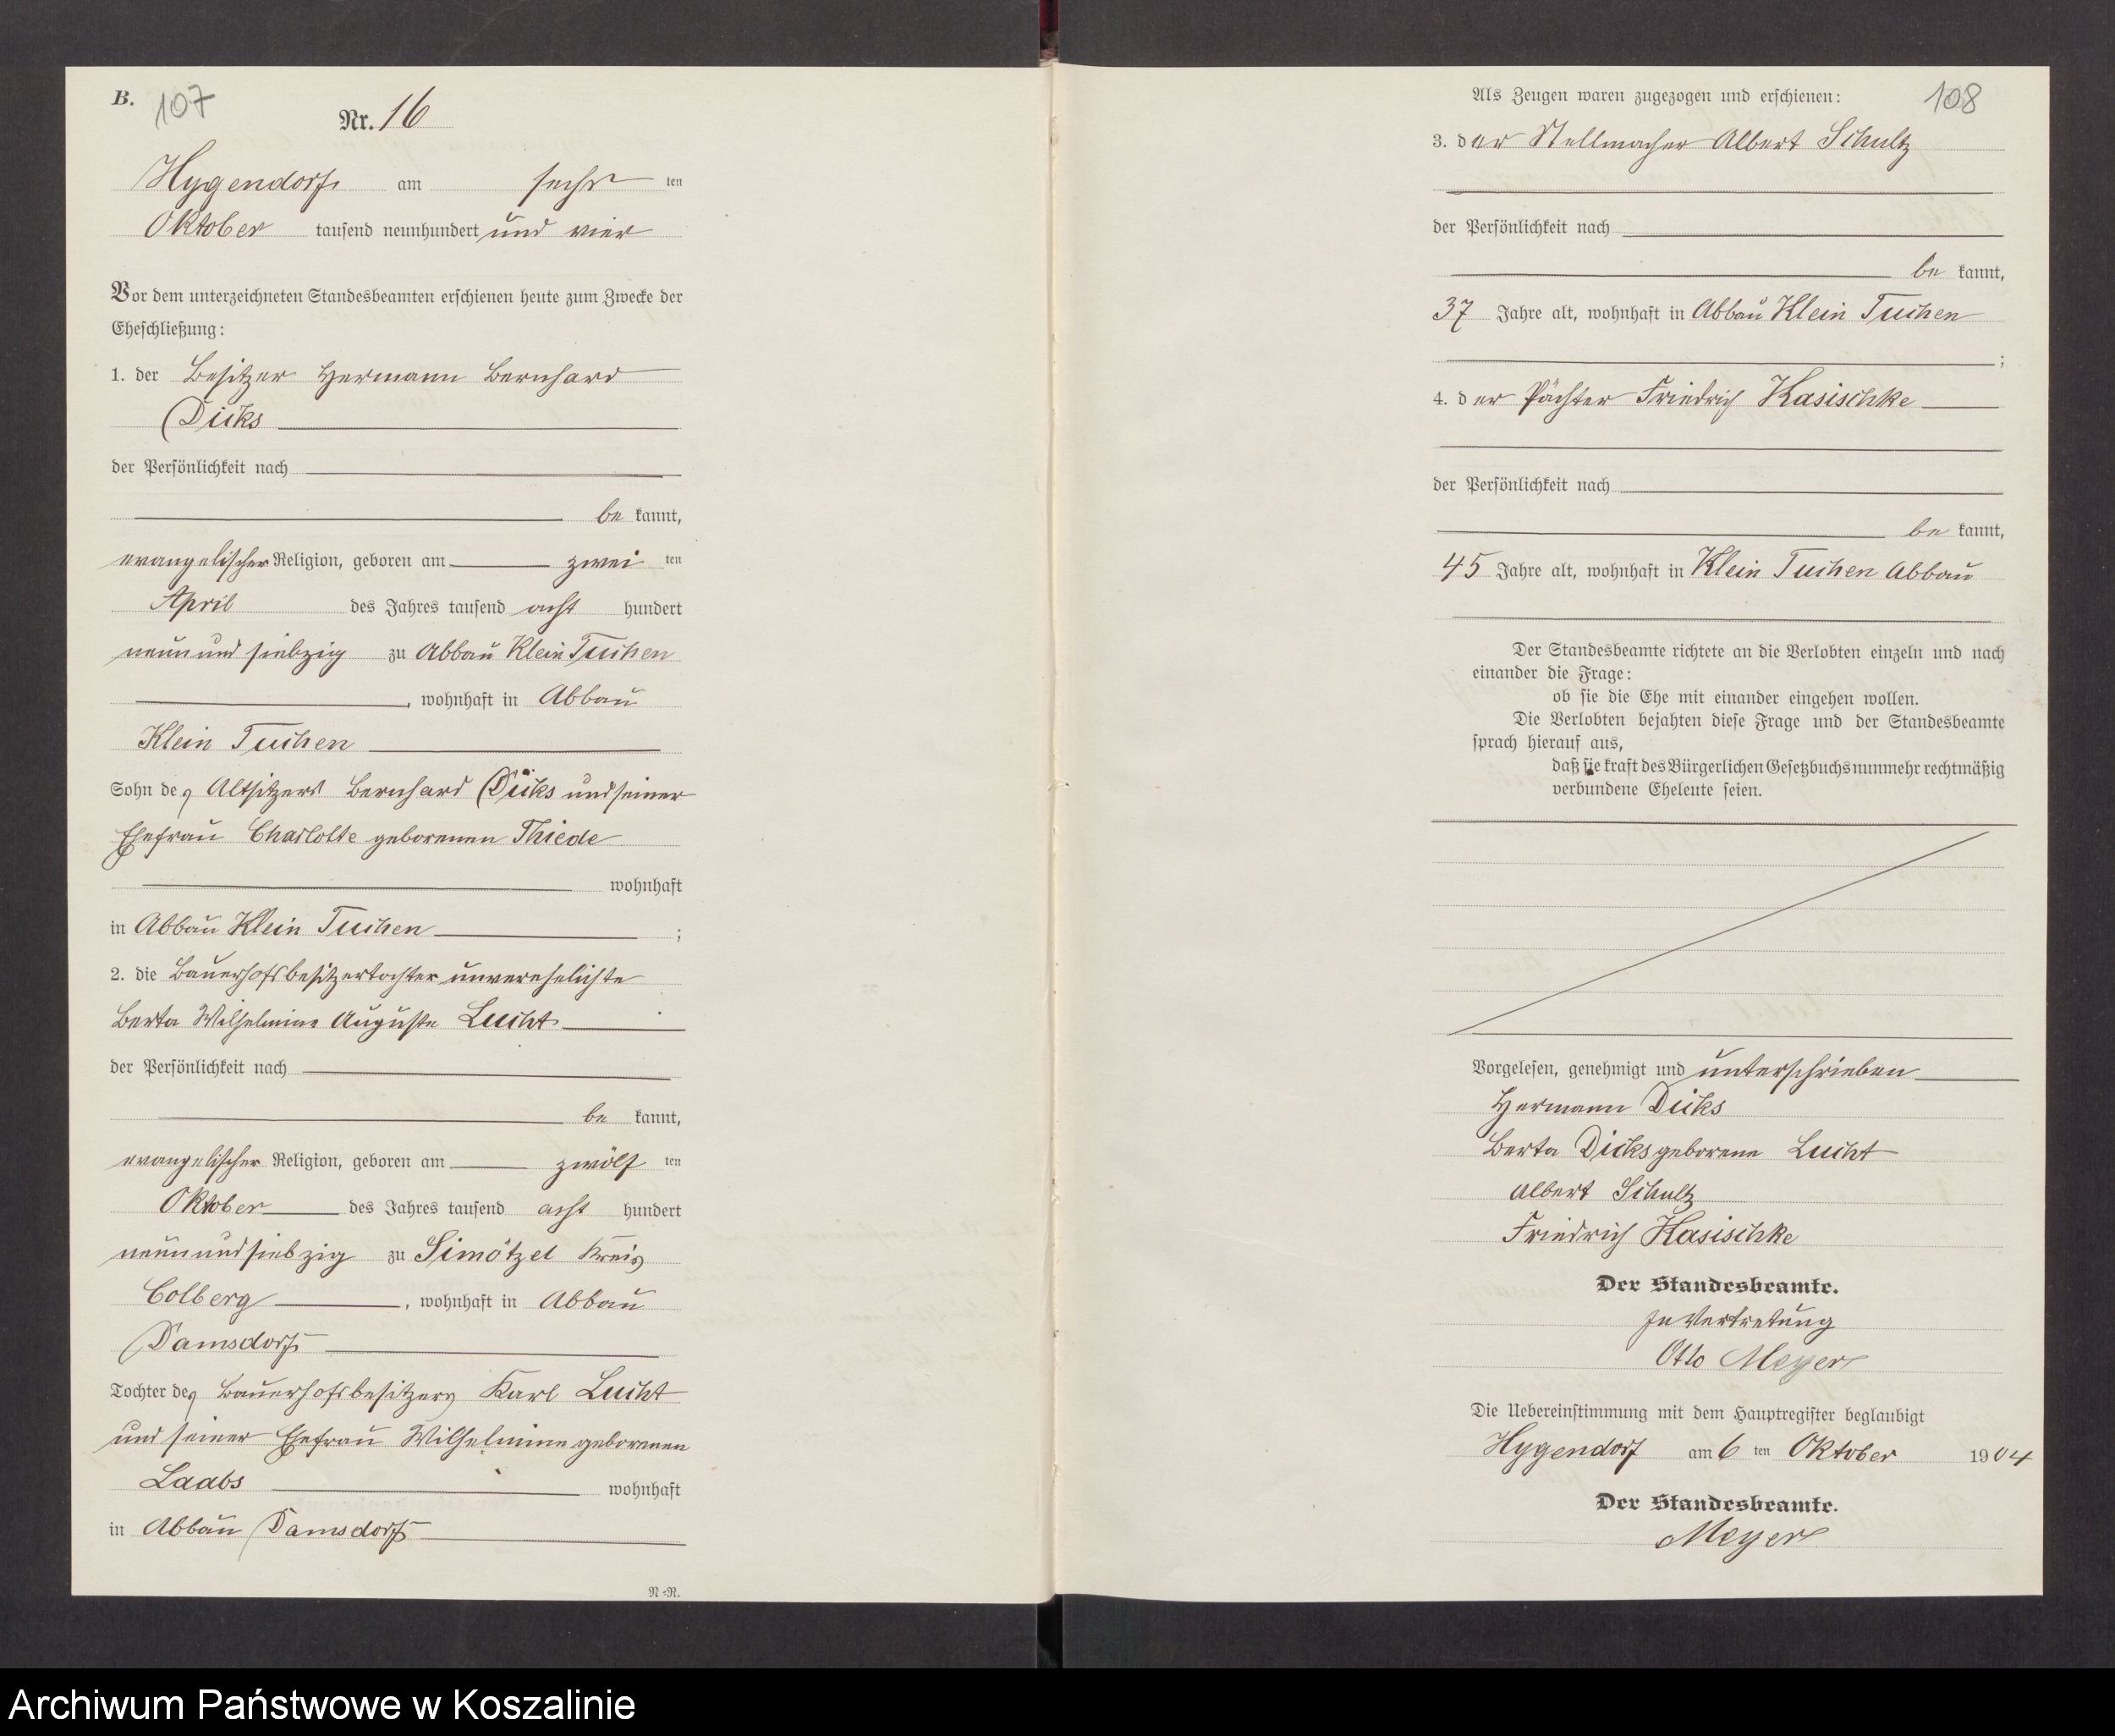 B.
107
Nr. 16
Hygendorf am sechs ten
Oktober tausend neunhundert und vier
Vor dem unterzeichneten Standesbeamten erschienen heute zum Zwecke der
Eheschließung:
1. der Besitzer Hermann Bernhard
Dicks
der Persönlichkeit nach
be kannt,
evangelischer Religion, geboren am zwei ten
April des Jahres tausend acht hundert
neun und siebzig zu Abbau Klein Tuchen
, wohnhaft in Abbau
Klein Tuchen
Sohn des Altsitzers Bernhard Dicks und seiner
Ehefrau Charlotte geborenen Thiede
wohnhaft
in Abbau Klein Tuchen ;
2. die Bauerhofsbesitzertochter unverehelichte
Berta Wilhelmine Auguste Lucht
der Persönlichkeit nach
be kannt,
evangelischer Religion, geboren am zwölf ten
Oktober des Jahres tausend acht hundert
neun und siebzig zu Simötzel Kreis
Colberg , wohnhaft in Abbau
Damsdorf
Tochter des Bauerhofsbesitzers Karl Lucht
und seiner Ehefrau Wilhelmine geborenen
Laabs wohnhaft
in Abbau Damsdorf
N-R.
Als Zeugen waren zugezogen und erschienen:
108
3. der Stellmacher Albert Schultz
der Persönlichkeit nach
be kannt,
37 Jahre alt, wohnhaft in Abbau Klein Tuchen
;
4. der Pächter Friedrich Kasischke
der Persönlichkeit nach
be kannt,
45 Jahre alt, wohnhaft in Klein Tuchen Abbau
Der Standesbeamte richtete an die Verlobten einzeln und nach
einander die Frage:
ob sie die Ehe mit einander eingehen wollen.
Die Verlobten bejahten diese Frage und der Standesbeamte
sprach hierauf aus,
daß sie kraft des Bürgerlichen Gesetzbuchs nunmehr rechtmäßig
verbundene Eheleute seien.
Vorgelesen, genehmigt und unterschrieben
Hermann Dicks
Berta Dicks geborene Lucht
Albert Schultz
Friedrich Kasischke
Der Standesbeamte.
In Vertretung
Otto Meyer
Die Uebereinstimmung mit dem Hauptregister beglaubigt
Hygendorf am 6 ten Oktober 1904
Der Standesbeamte.
Meyer
Archiwum Państwowe w Koszalinie